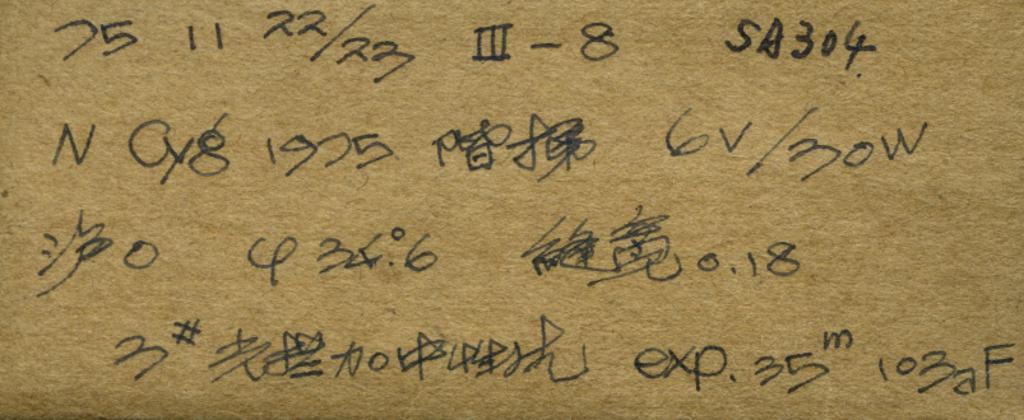 75 11 22/23 III-8 SA304
N Cyg 1975 阶梯 6V/30W
沙0 φ 34°.6 缝宽 0.18
3# 光楔加中性
exp. 35m 103aF